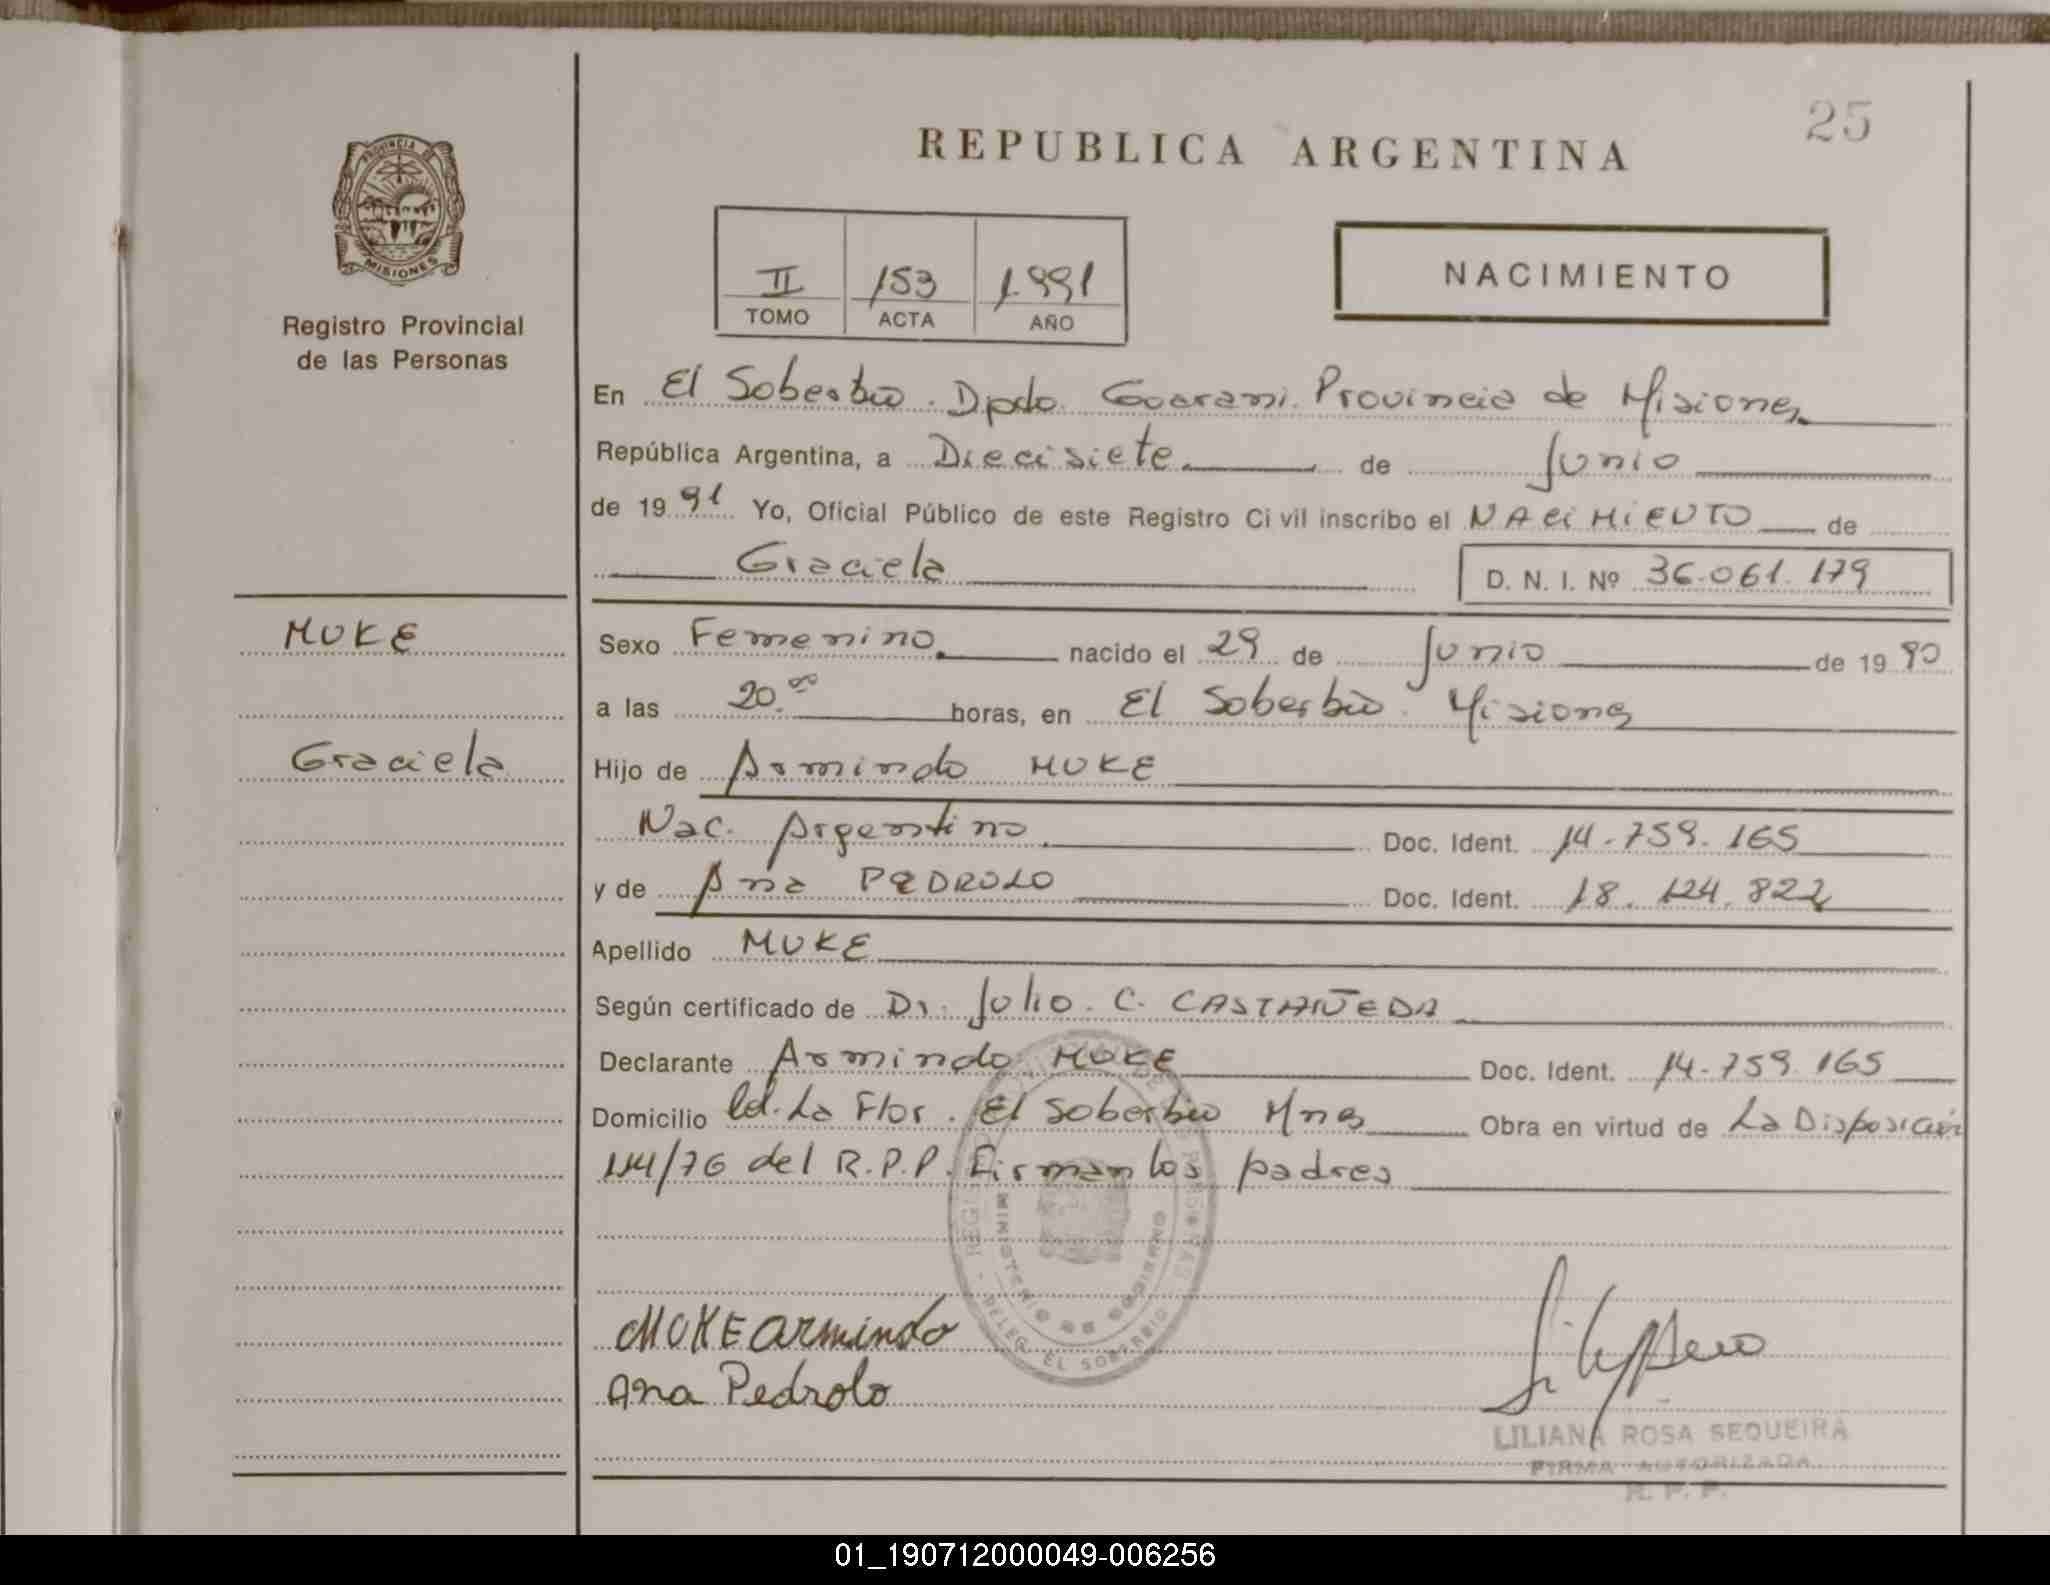 25
REPUBLICA ARGENTINA
PROVINCIA DE
MISIONES
Registro Provincial
de las Personas
II 153 1991
TOMO ACTA AÑO
NACIMIENTO
En El Soberbio. Dpdo. Guarani. Provincia de Misiones
República Argentina, a Diecisiete de Junio
de 1991 Yo, Oficial Público de este Registro Civil inscribo el NACIMIENTO de
Graciela D. N. I. Nº 36.061.179
MUKE
Sexo Femenino. nacido el 29 de Junio de 1990
a las 20.00 horas, en El Soberbio. Misiones
Graciela
Hijo de Armindo MUKE
Nac. Argentino. Doc. Ident. 14.759.165
y de Ana PEDROLO Doc. Ident. 18.124.822
Apellido MUKE
Según certificado de Dr. Julio. C. CASTAÑEDA
Declarante Armindo MUKE Doc. Ident. 14.759.165
Domicilio Cd. La Flor. El Soberbio Mnes Obra en virtud de La Disposición
114/76 del R.P.P. Firman los padres
REGISTRO DE LAS PERSONAS - DELEG. EL SOBERBIO
MINISTERIO DE GOBIERNO
MUKE Armindo
Ana Pedrolo
LILIANA ROSA SEQUEIRA
FIRMA AUTORIZADA
R. P. P.
01_190712000049-006256